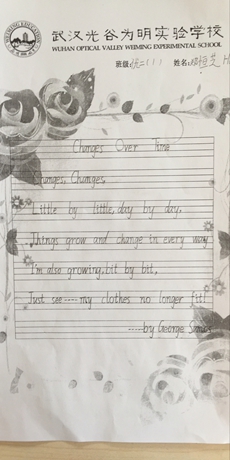 武汉光谷为明实验学校
WUHAN OPTICAL VALLEY WEIMING EXPERIMENTAL SCHOOL
班级: 姓名:
Changes Over Time
Changes, Changes,
Little by little, day by day,
Things grow and change in every way
I'm also growing, bit by bit,
Just see----my clothes no longer fit!
----by George Samos